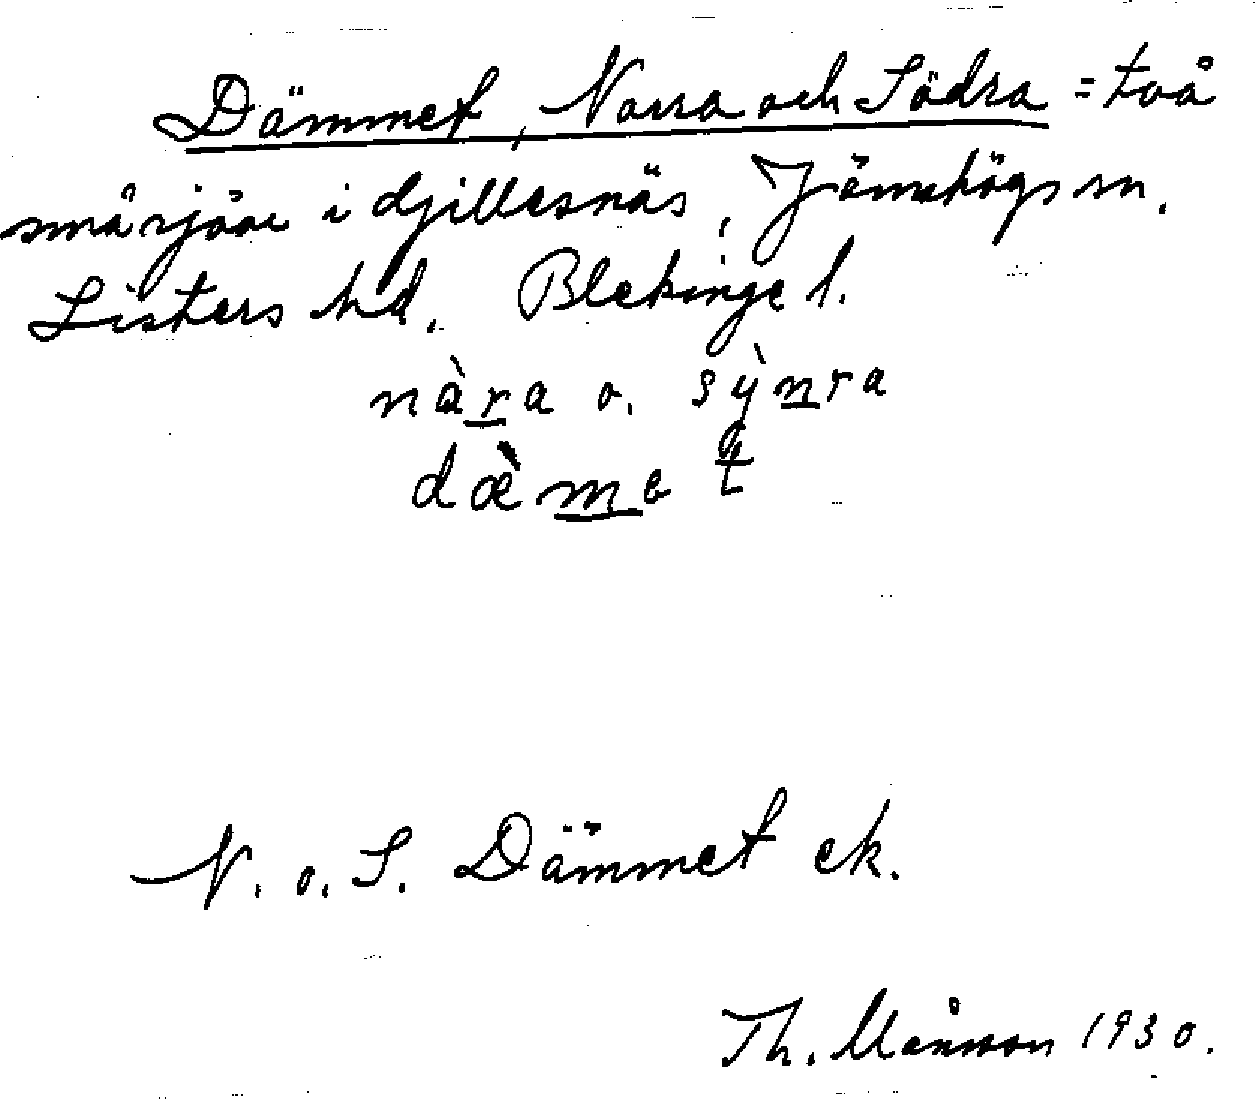 Dämmet, Norra och Södra = två
småsjöar i Gjillesnäs, Jämshögs sn.
Listers hd. Blekinge l.
nàra o. sỳnra
dæ̀met
N. o. S. Dämmet ek.
Th. Månsson 1930.